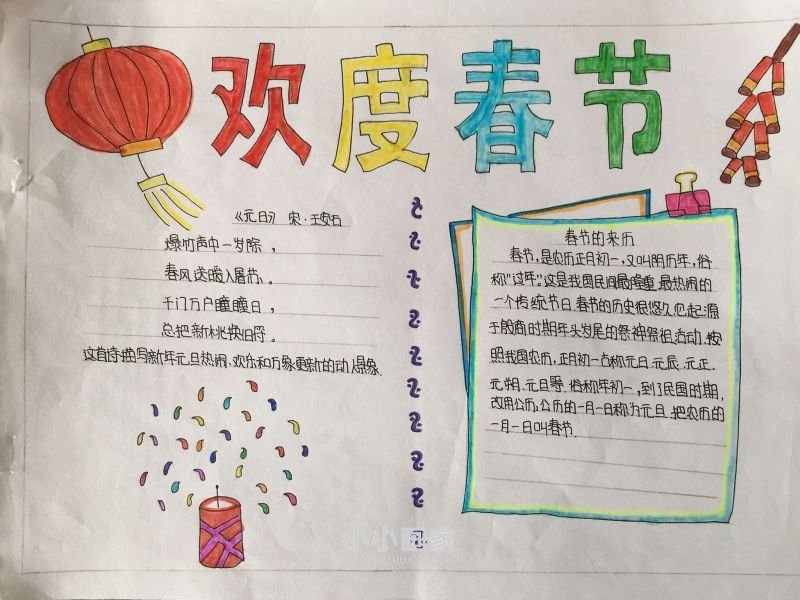 欢度春节
《元日》 宋·王安石
爆竹声中一岁除，
春风送暖入屠苏。
千门万户曈曈日，
总把新桃换旧符。
这首诗描写新年元旦热闹、欢乐和万象更新的动人景象.
春节的来历
春节,是农历正月初一,又叫阴历年,俗
称"过年".这是我国民间最隆重.最热闹的
一个传统节日.春节的历史很悠久,它起源
于殷商时期年头岁尾的祭神祭祖活动.按
照我国农历,正月初一古称元日.元辰.元正.
元朔.元旦等.俗称年初一,到了民国时期,
改用公历,公历的一月一日称为元旦.把农历的
一月一日叫春节.
小小画家